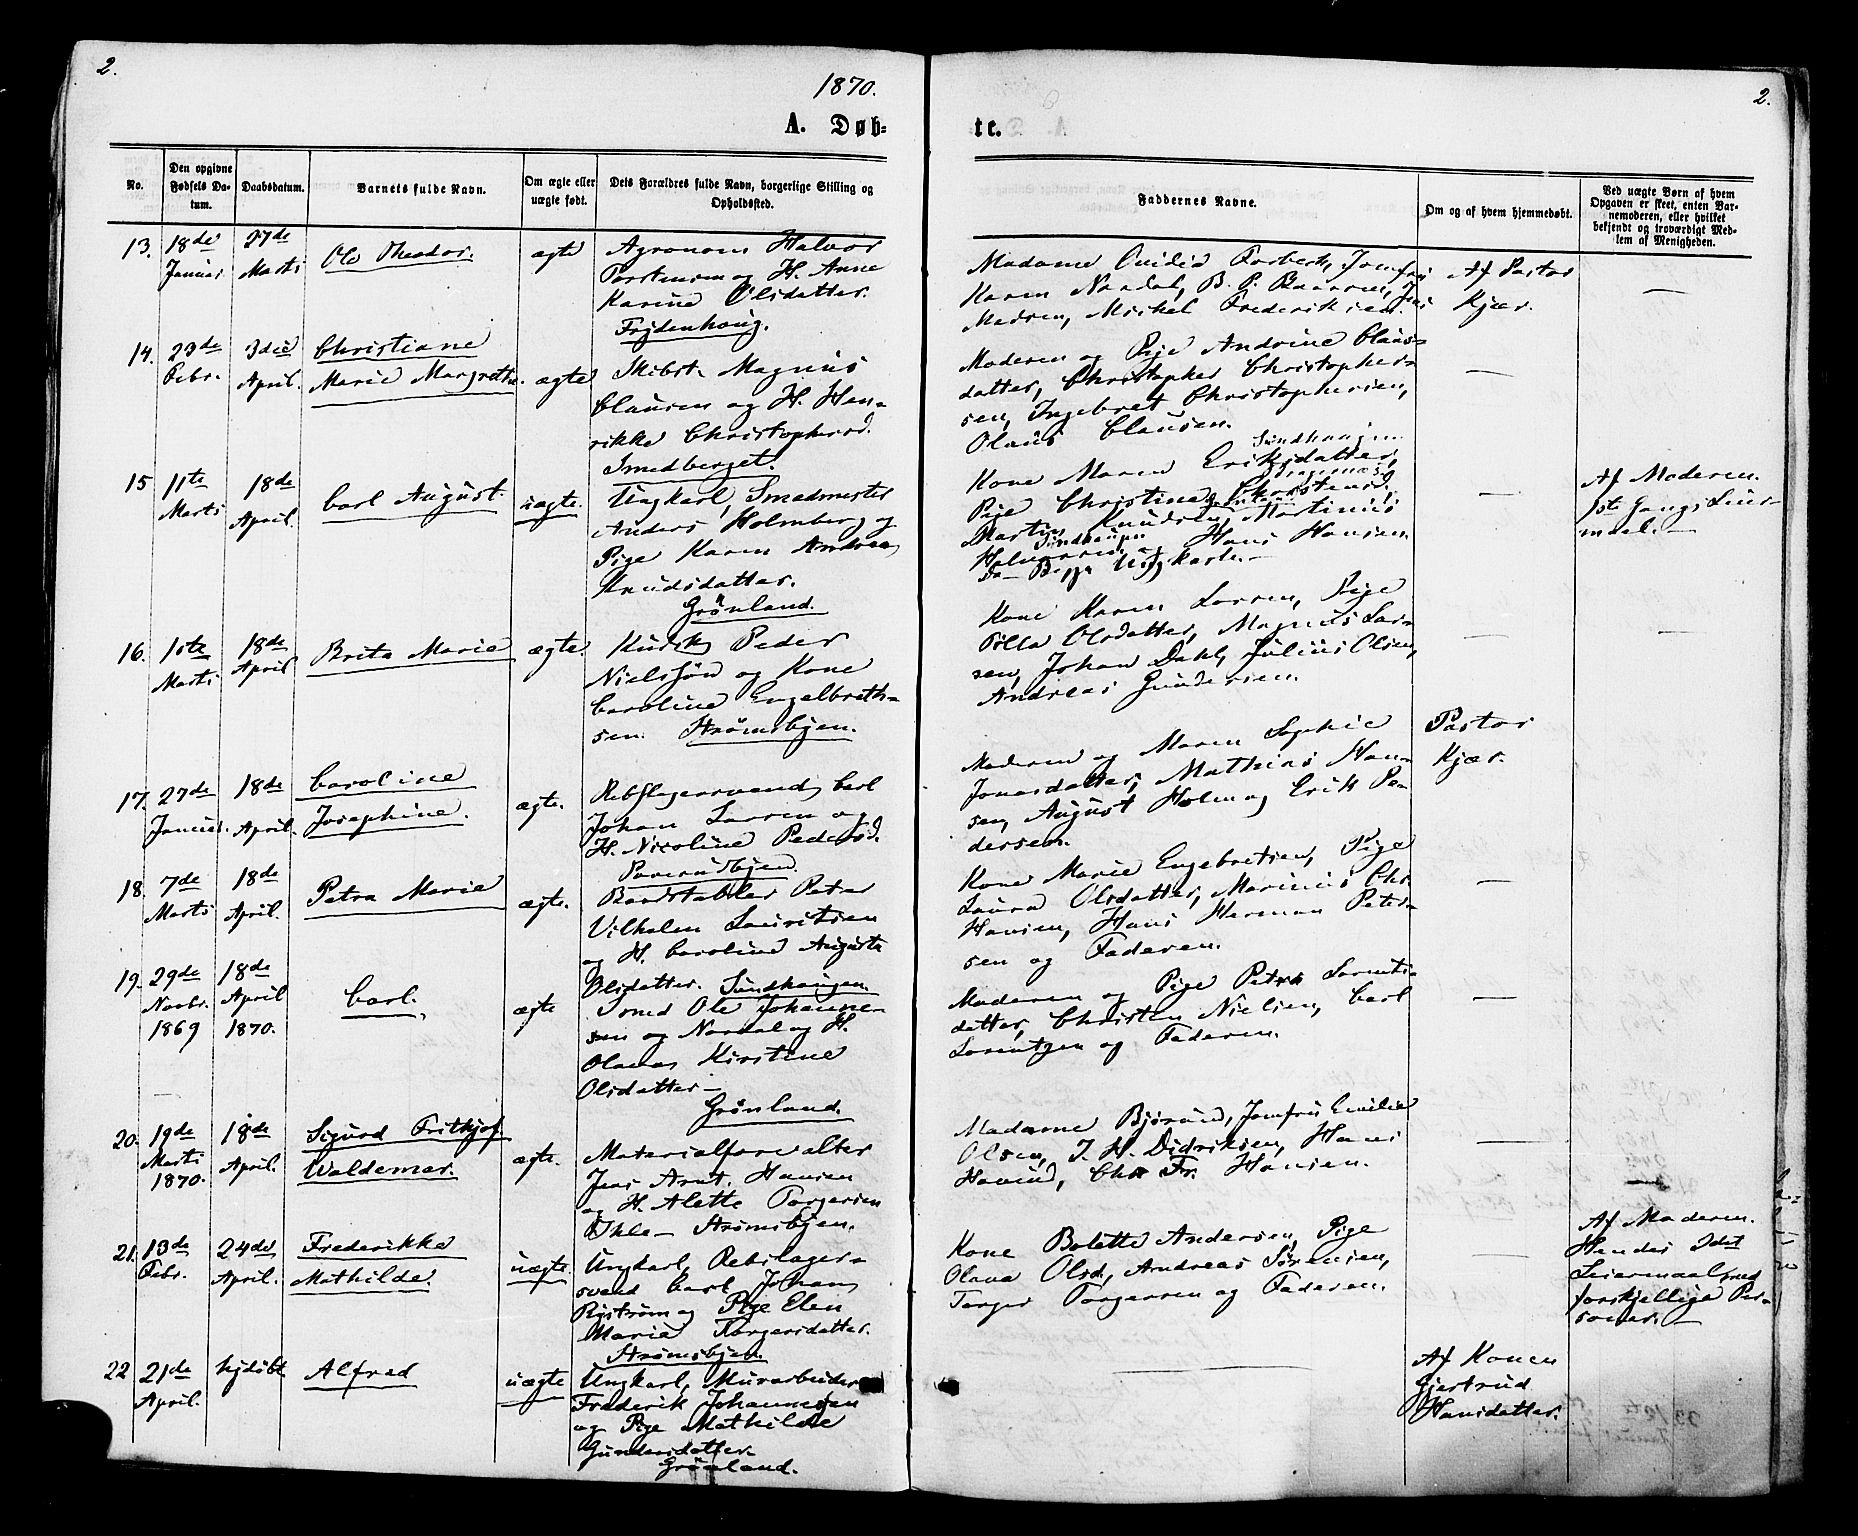 2.
1870.
2.
A. Døb-
te.
No.
Den opgivne Fødsels Da-tum.
Daabsdatum.
Barnets fulde Navn.
Om ægte eller uægte født.
Dets Forældres fulde Navn, borgerlige Stilling og Opholdssted.
Faddernes Navne.
Om og af hvem hjemmedøbt.
Ved uægte Børn af hvem Opgaven er skeet, enten Bar-nemoderen, eller hvilket bekjendt og troværdigt Med-lem af Menigheden.
13.
18de
Januar
27de
Marts
Ole Theodor.
ægte
Agronom Halvor
Torstensen og H. Anne
Karine Olsdatter.
Frydenhoug.
Madame Jomfru
Karen Nordal,
Madsen, Michel Frederiksen.
Af Pastor
Kjær.
14.
23de
Febr.
3die
April.
Christiane
Marie Margrethe.
ægte
Skibst. Magnus
Clausen og H. Hen-
rikke Christophersd.
Smedberget.
Moderen og Pige Andrine Claus-
datter, Christopher Christopher-
sen, Ingebret Christophersen,
Olaus Clausen.
15
11te
Marts
18de
April.
Carl August.
uægte.
Ungkarl, Smedmester
Anders Holmberg og
Pige Karen Andrea
Knudsdatter.
Grønland.
Kone Maren Eriksdatter,
Sundhaugen
Pige Christine Christensd.
Martin Knudsen, Martinus
Halvorsen og Hans Hansen
Sundhaugen
De Begge Ungkarle.
Af Moderen.
1ste Gangs Leier-
maal.
16.
1ste
Marts
18de
April
Brita Marie
ægte.
Kudsk Peder
Nielssøn og Kone
Caroline Engelbreth-
sen. Strømsbyen.
Kone Karen Larsen, Pige
Pilla Olsdatter, Magnus Lar-
sen, Johan Dahl, Julius Olsen,
Andreas Gundersen.
17.
27de
Januar.
18de
April.
Caroline
Josephine.
ægte.
Rebslagersvend Carl
Johan Larsen og
H. Nicoline Pedersd.
Moderen og Maren Sophie
Jonasdatter, Mathias Han-
sen, August Holm og Erik Pe-
dersen.
Pastor
Kjær.
18.
7de
Marts
18de
April.
Petra Marie
ægte.
Bordstabler Peter
Vilhelm Lauritsen
og H. Caroline Augusta
Olsdatter. Sundhaugen.
Kone Marie Engebretsen, Pige
Laura Olsdatter, Marinus Chr.
Hansen, Hans Herman Peter-
sen og Faderen.
19.
29de
Novbr.
1869
18de
April
1870.
Carl.
ægte
Smed Ole Johanne-
sen og Nordal og H.
Olava Kirstine
Olsdatter
Grønland.
Moderen og Pige Petra Lorents-
datter, Christen Nielsen, Carl
Lorentzen og Faderen.
20.
19de
Marts
1870.
18de
April.
Sigurd Frithjof
Waldemar.
ægte.
Materialforvalter
Jens Arnt. Hansen
og H. Alette Torgersen
Uhle- Strømsbyen.
Madame Bjørund, Jomfru Emilie
Olsen, J. H. Didriksen, Hans
Chr. Fr. Hansen.
21.
13de
Febr.
24de
April.
Frederikke
Mathilde.
uægte.
Ungkarl, Rebslager-
svend Carl Johan
Rystrøm og Pige Elen
Marie Torgersdatter.
Strømsbyen.
Kone Bolette Andersen, Pige
Olava Olsd, Andreas Sørensen,
Torger Torgersen og Faderen.
Af Moderen.
Hendes 2det
Leiermaal med
forskjellige Per-
soner.
22
21de
April.
hjdøbt
Alfred
uægte
Ungkarl, Murarbeider
Frederik Johannesen
og Pige Mathilde
Gundersdatter.
Grønland.
Af Konen
Gjertrud
Hansdatter.